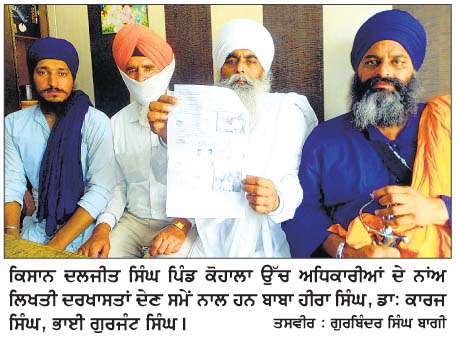 ਕਿਸਾਨ ਦਲਜੀਤ ਸਿੰਘ ਪਿੰਡ ਕੋਹਾਲਾ ਉੱਚ ਅਧਿਕਾਰੀਆਂ ਦੇ ਨਾਂਅ
ਲਿਖਤੀ ਦਰਖਾਸਤਾਂ ਦੇਣ ਸਮੇਂ ਨਾਲ ਹਨ ਬਾਬਾ ਹੀਰਾ ਸਿੰਘ, ਡਾ: ਕਾਰਜ
ਸਿੰਘ, ਭਾਈ ਗੁਰਜੰਟ ਸਿੰਘ। ਤਸਵੀਰ : ਗੁਰਬਿੰਦਰ ਸਿੰਘ ਬਾਗੀ